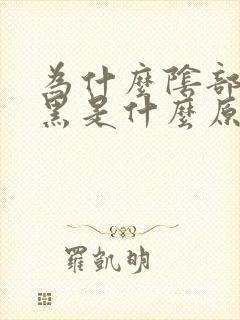 為什麼陰部
黑是什麼原
羅凱明